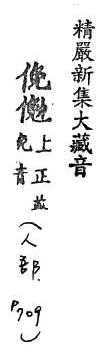 精嚴新集大藏音
俛 上正並免音(人部. P709)